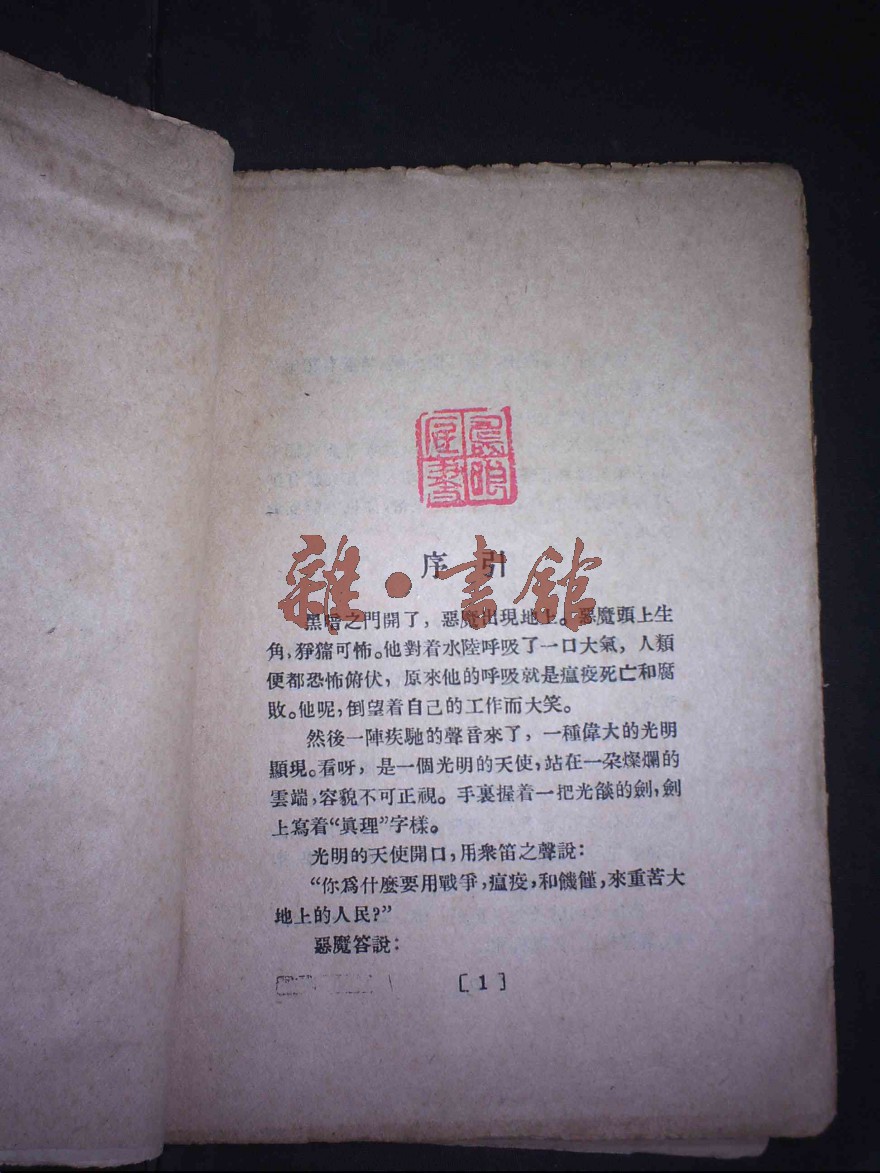 序引
雜·書館
黑暗之門開了，惡魔出現地上。惡魔頭上生
角，猙獰可怖。他對着水陸呼吸了一口大氣，人類
便都恐怖俯伏，原來他的呼吸就是瘟疫死亡和腐
敗。他呢，倒望着自己的工作而大笑。
然後一陣疾馳的聲音來了，一種偉大的光明
顯現。看呀，是一個光明的天使，站在一朶燦爛的
雲端，容貌不可正視。手裏握着一把光燄的劍，劍
上寫着“眞理”字樣。
光明的天使開口，用衆笛之聲說：
“你爲什麼要用戰爭，瘟疫，和饑饉，來重苦大
地上的人民？”
惡魔答說：
［1］